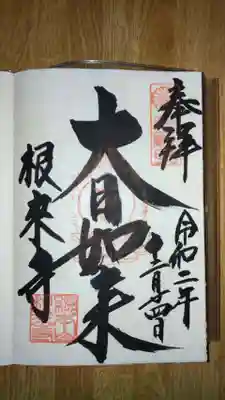 奉拝
令和二年
十二月十四日
大日如来
根来寺